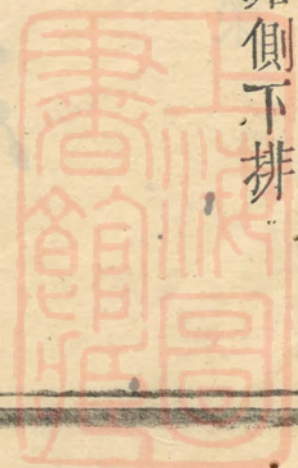 側下排
上海圖
書館藏